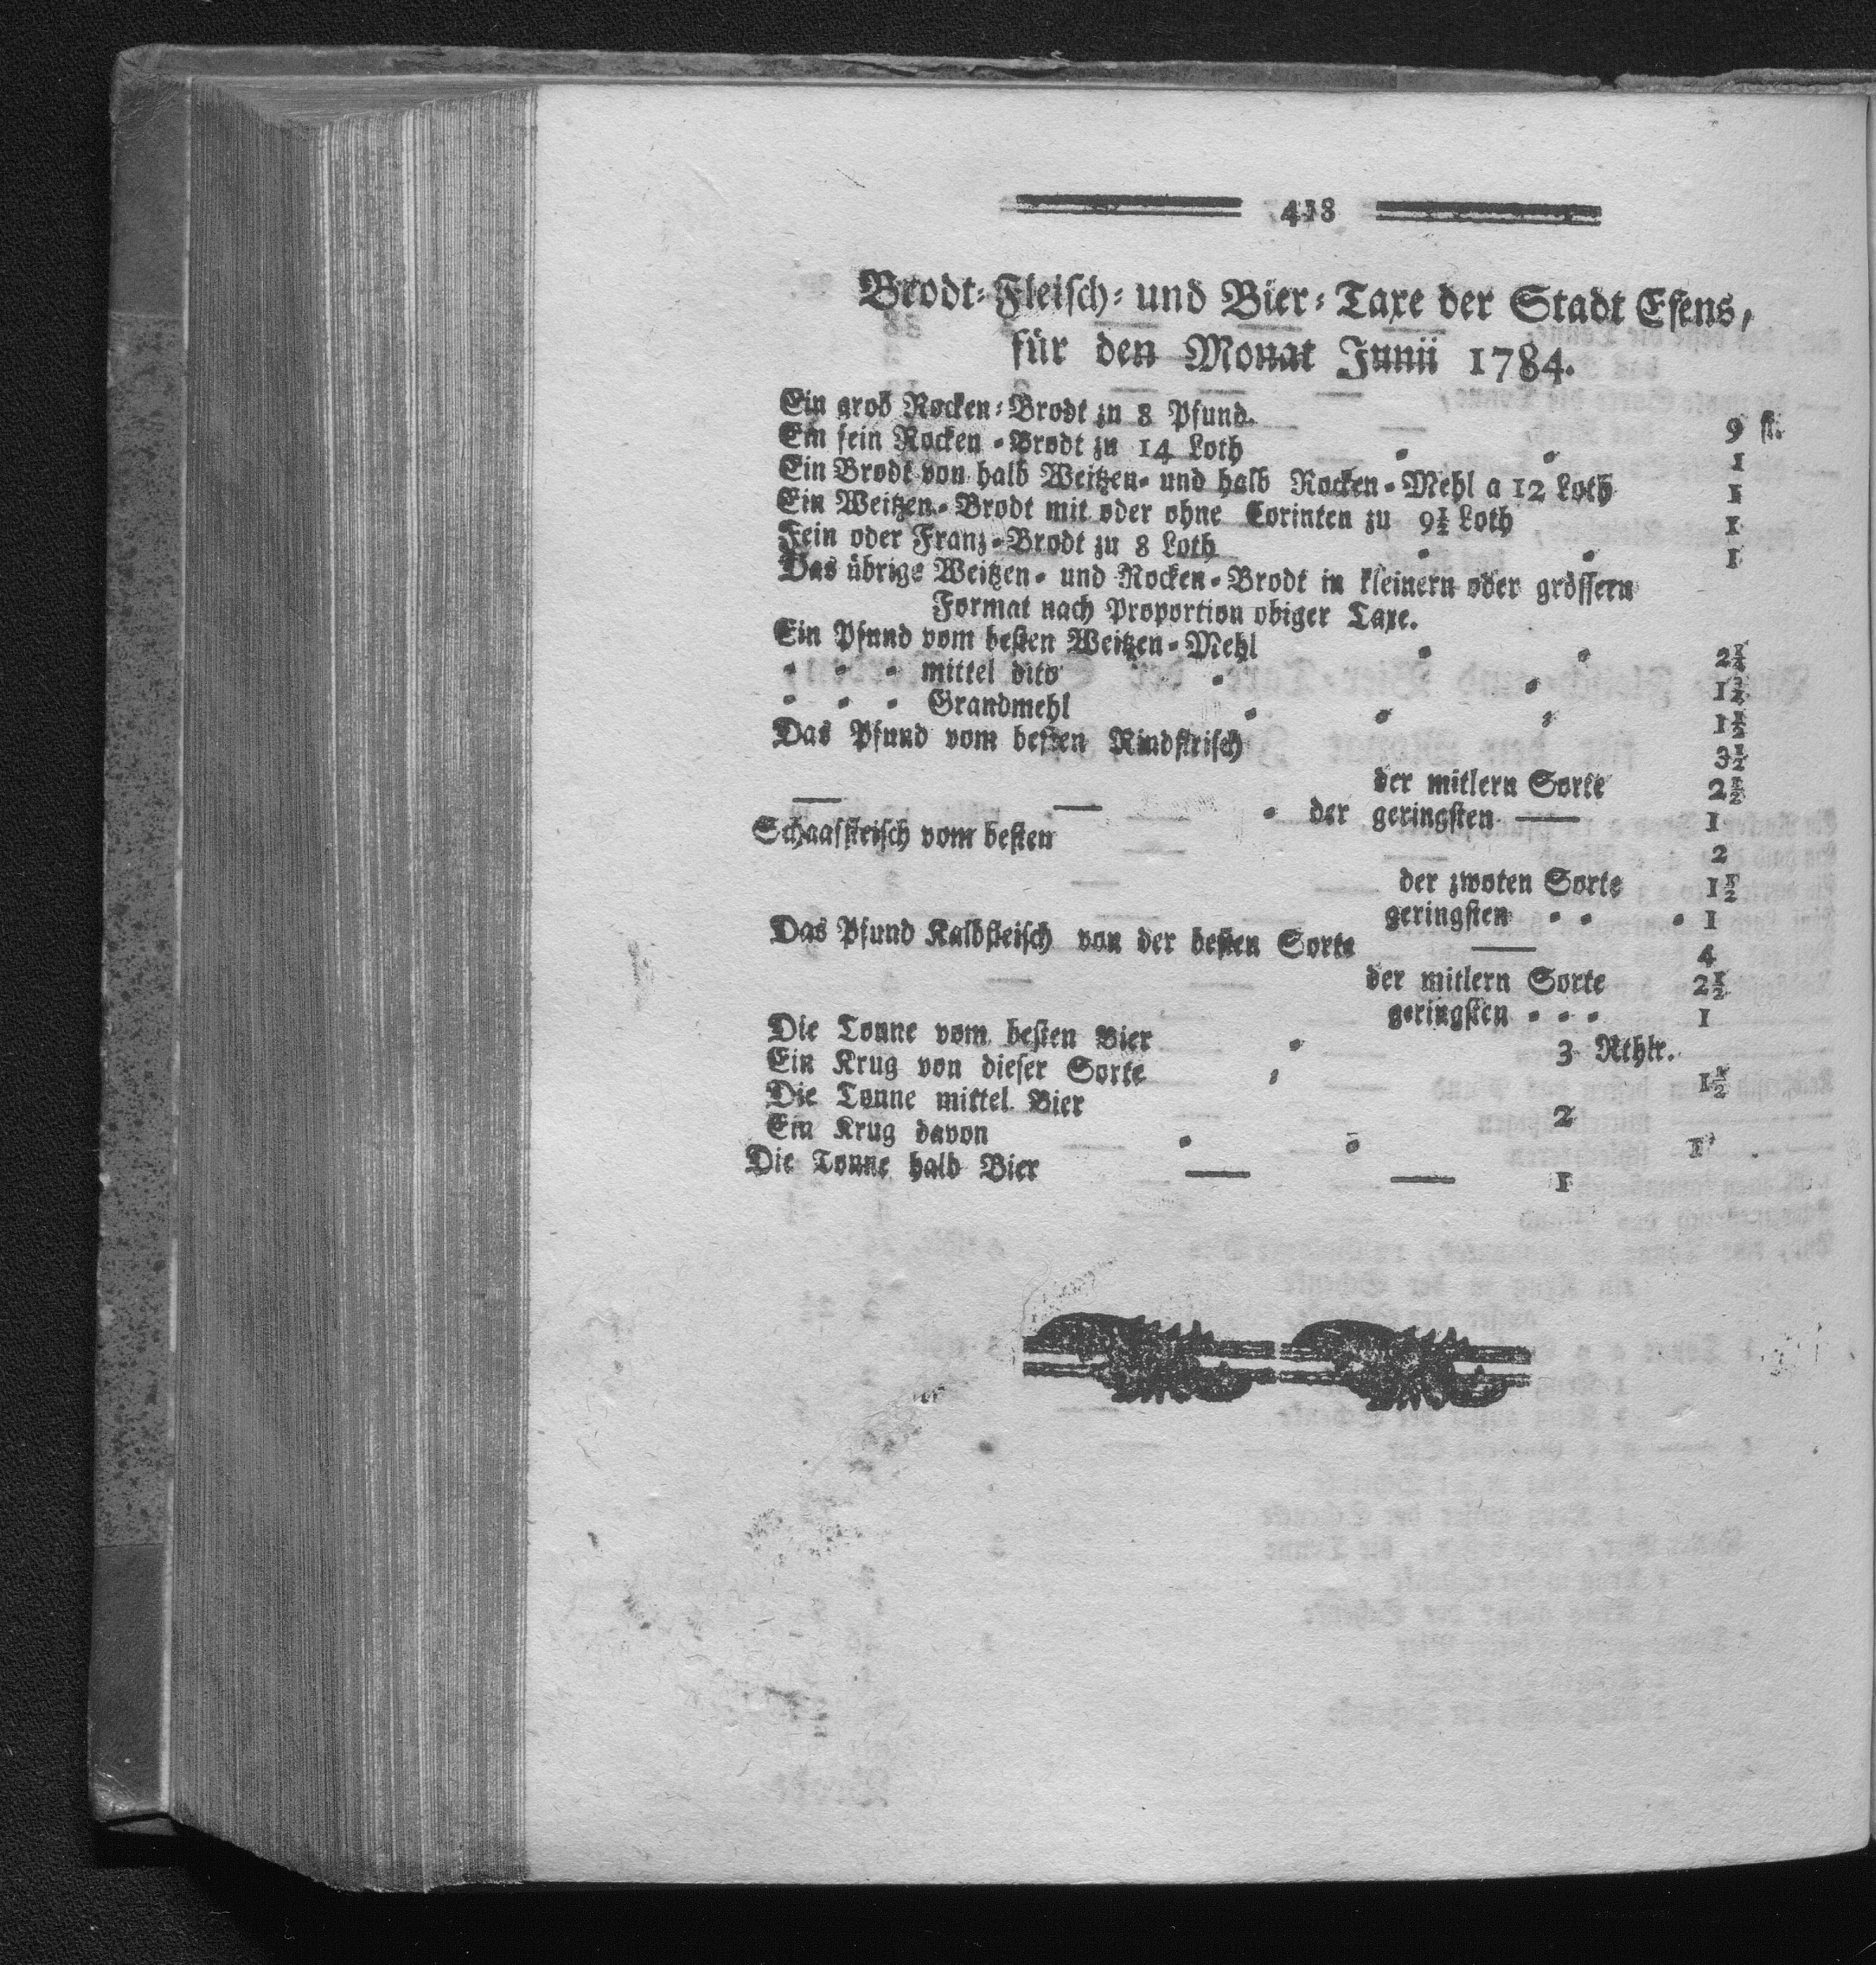 418
Brodt-Fleisch- und Bier-Taxe der Stadt Esens,
für den Monat Junii 1784.
Ein grob Rocken-Brodt zu 8 Pfund. 9 st.
Ein fein Rocken-Brodt zu 14 Loth 1
Ein Brodt von halb Weitzen- und halb Rocken-Mehl a 12 Loth 1
Ein Weitzen-Brodt mit oder ohne Corinten zu 9½ Loth 1
Fein oder Franz-Brodt zu 8 Loth 1
Das übrige Weitzen- und Rocken-Brodt in kleinern oder grössern
Format nach Proportion obiger Taxe.
Ein Pfund vom besten Weitzen-Mehl 2¼
mittel dito
Grandmehl 1½
Das Pfund vom besten Rindfleisch 3½
der mitlern Sorte 2½
— — der geringsten — 1
Schaaffleisch vom besten 2
der zwoten Sorte 1½
geringsten 1
Das Pfund Kalbfleisch von der besten Sorte — 4
der mitlern Sorte 2½
geringsten 1
Die Tonne vom besten Bier 3 Rthlr.
Ein Krug von dieser Sorte 1½
Die Tonne mittel Bier 2
Ein Krug davon 1
Die Tonne halb Bier — — 1